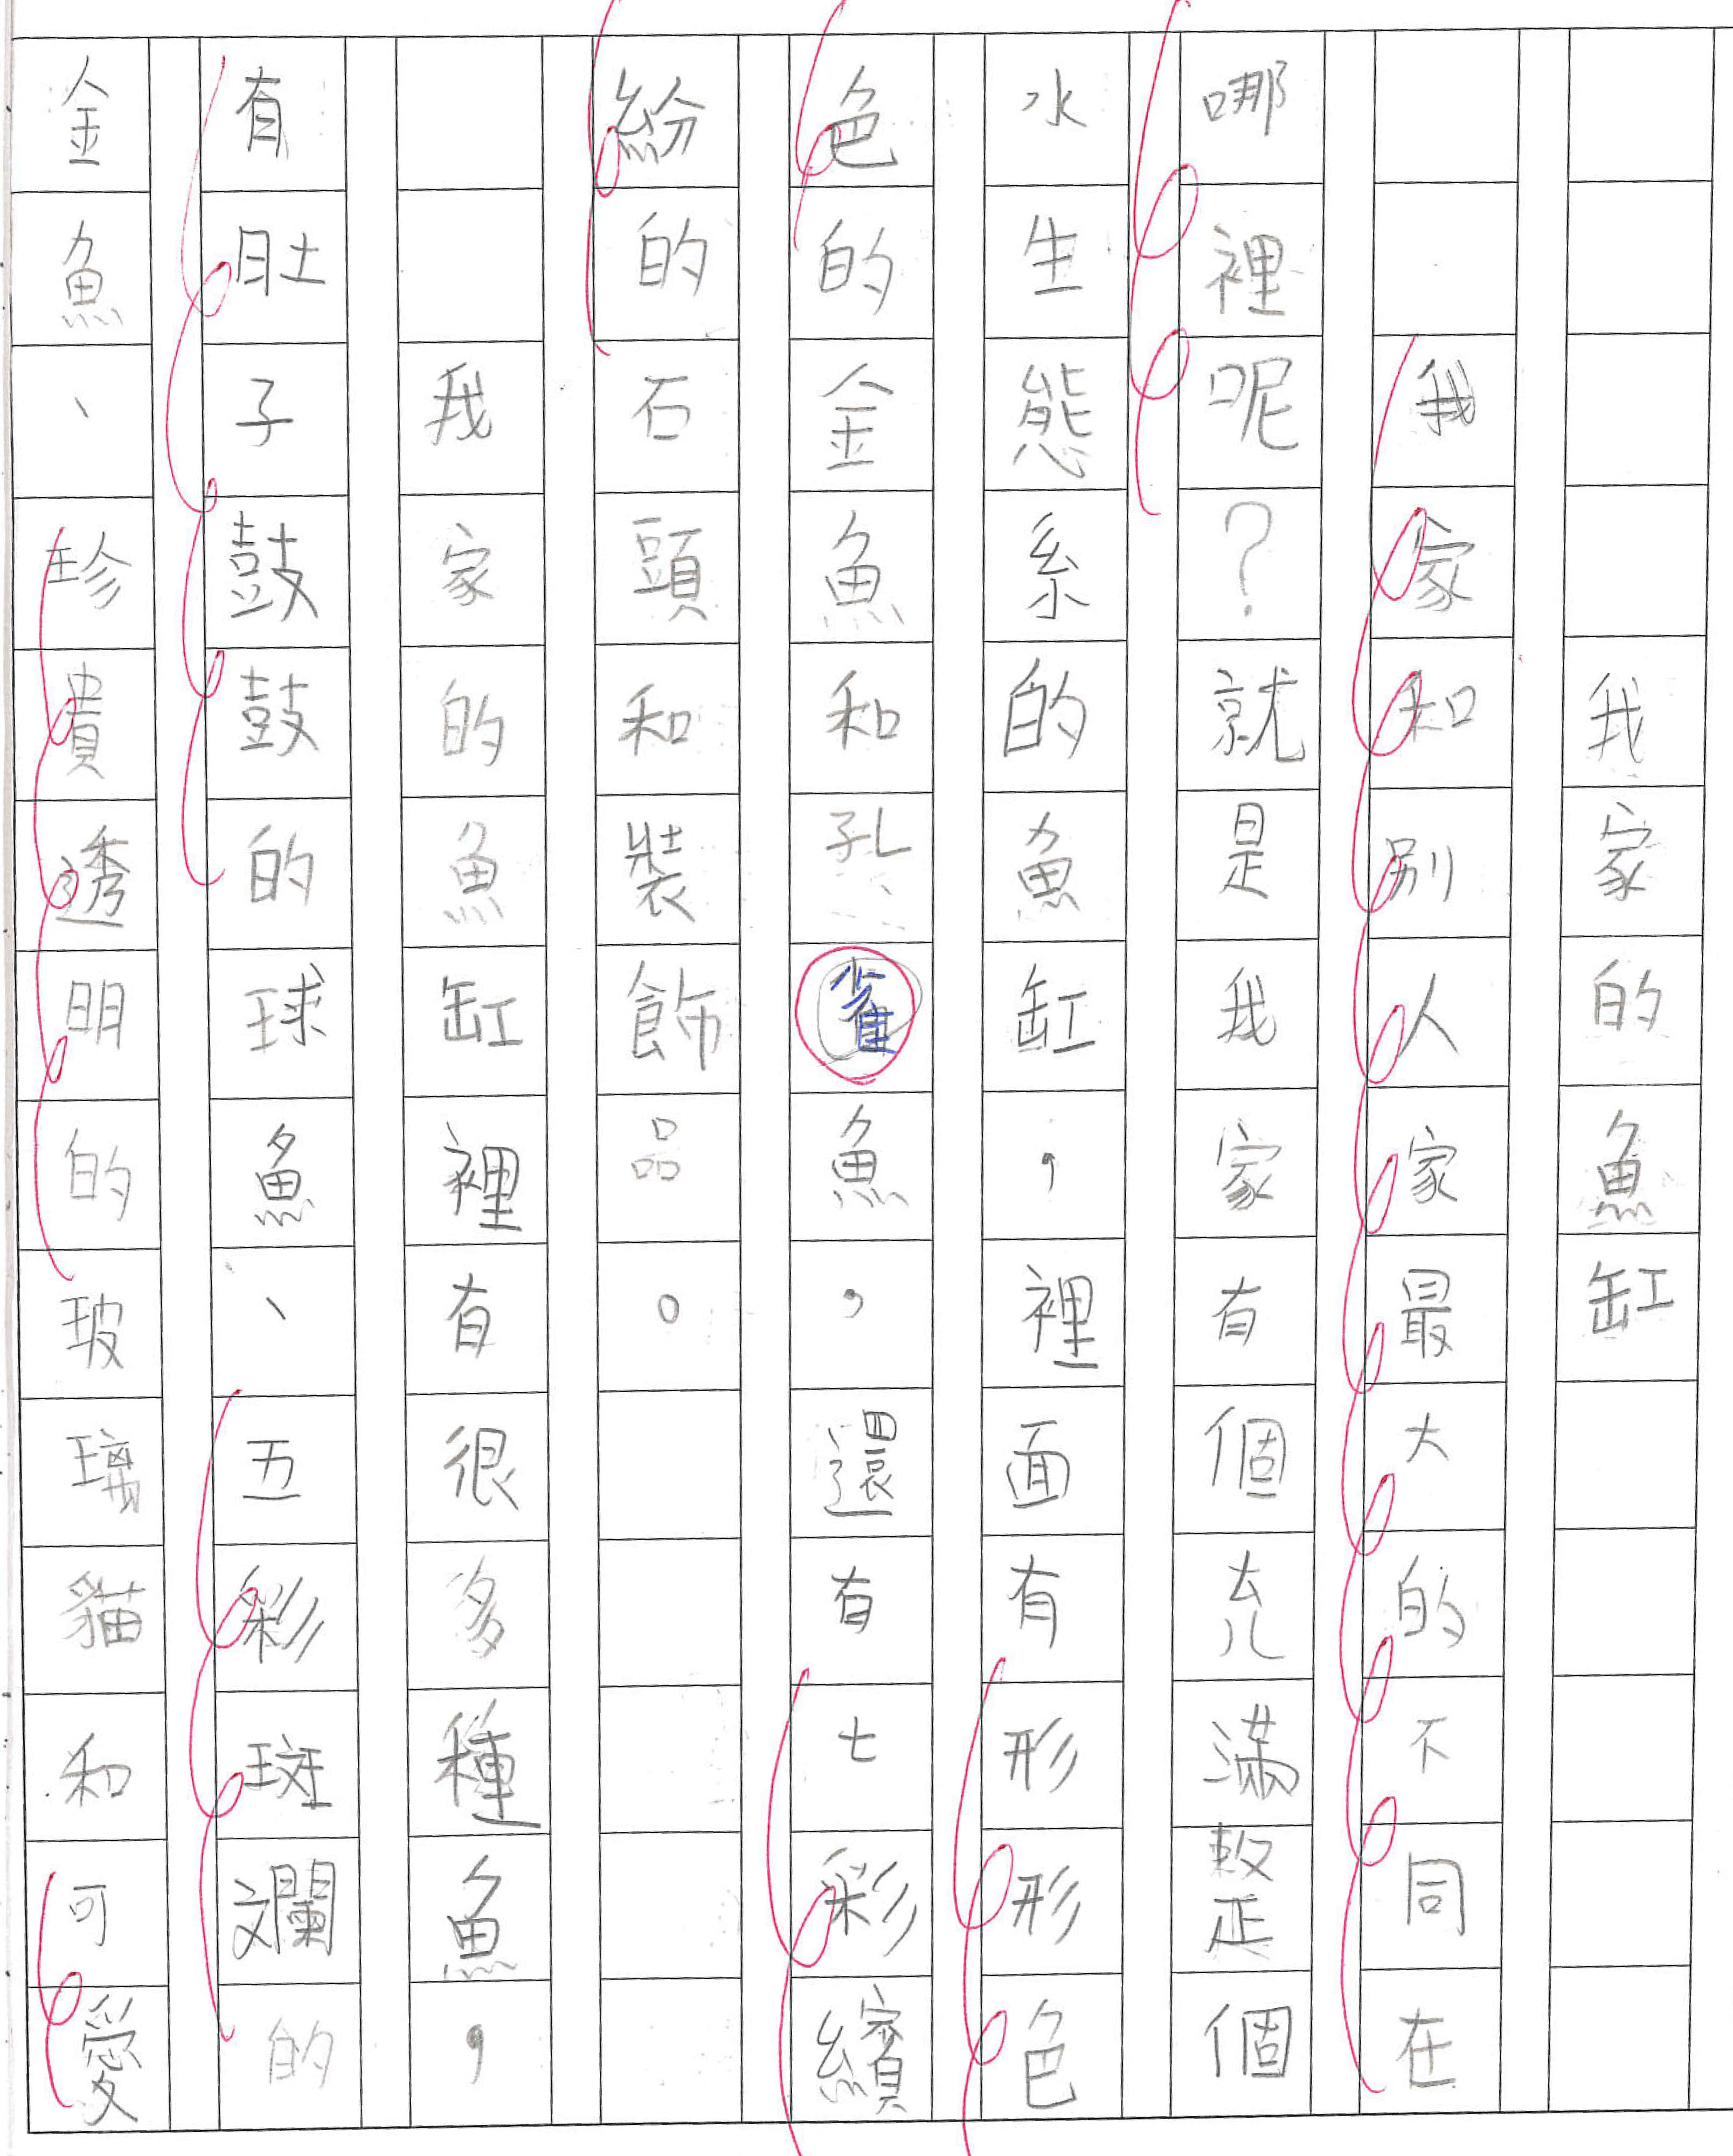 我家的魚缸
我家和別人家最大的不同在
哪裡呢?就是我家有個充滿整個
水生態系的魚缸,裡面有形形色
色的金魚和孔雀魚,還有七彩繽
紛的石頭和裝飾品。
我家的魚缸裡有很多種魚,
有肚子鼓鼓的球魚、五彩斑斕的
金魚、珍貴透明的玻璃貓和可愛